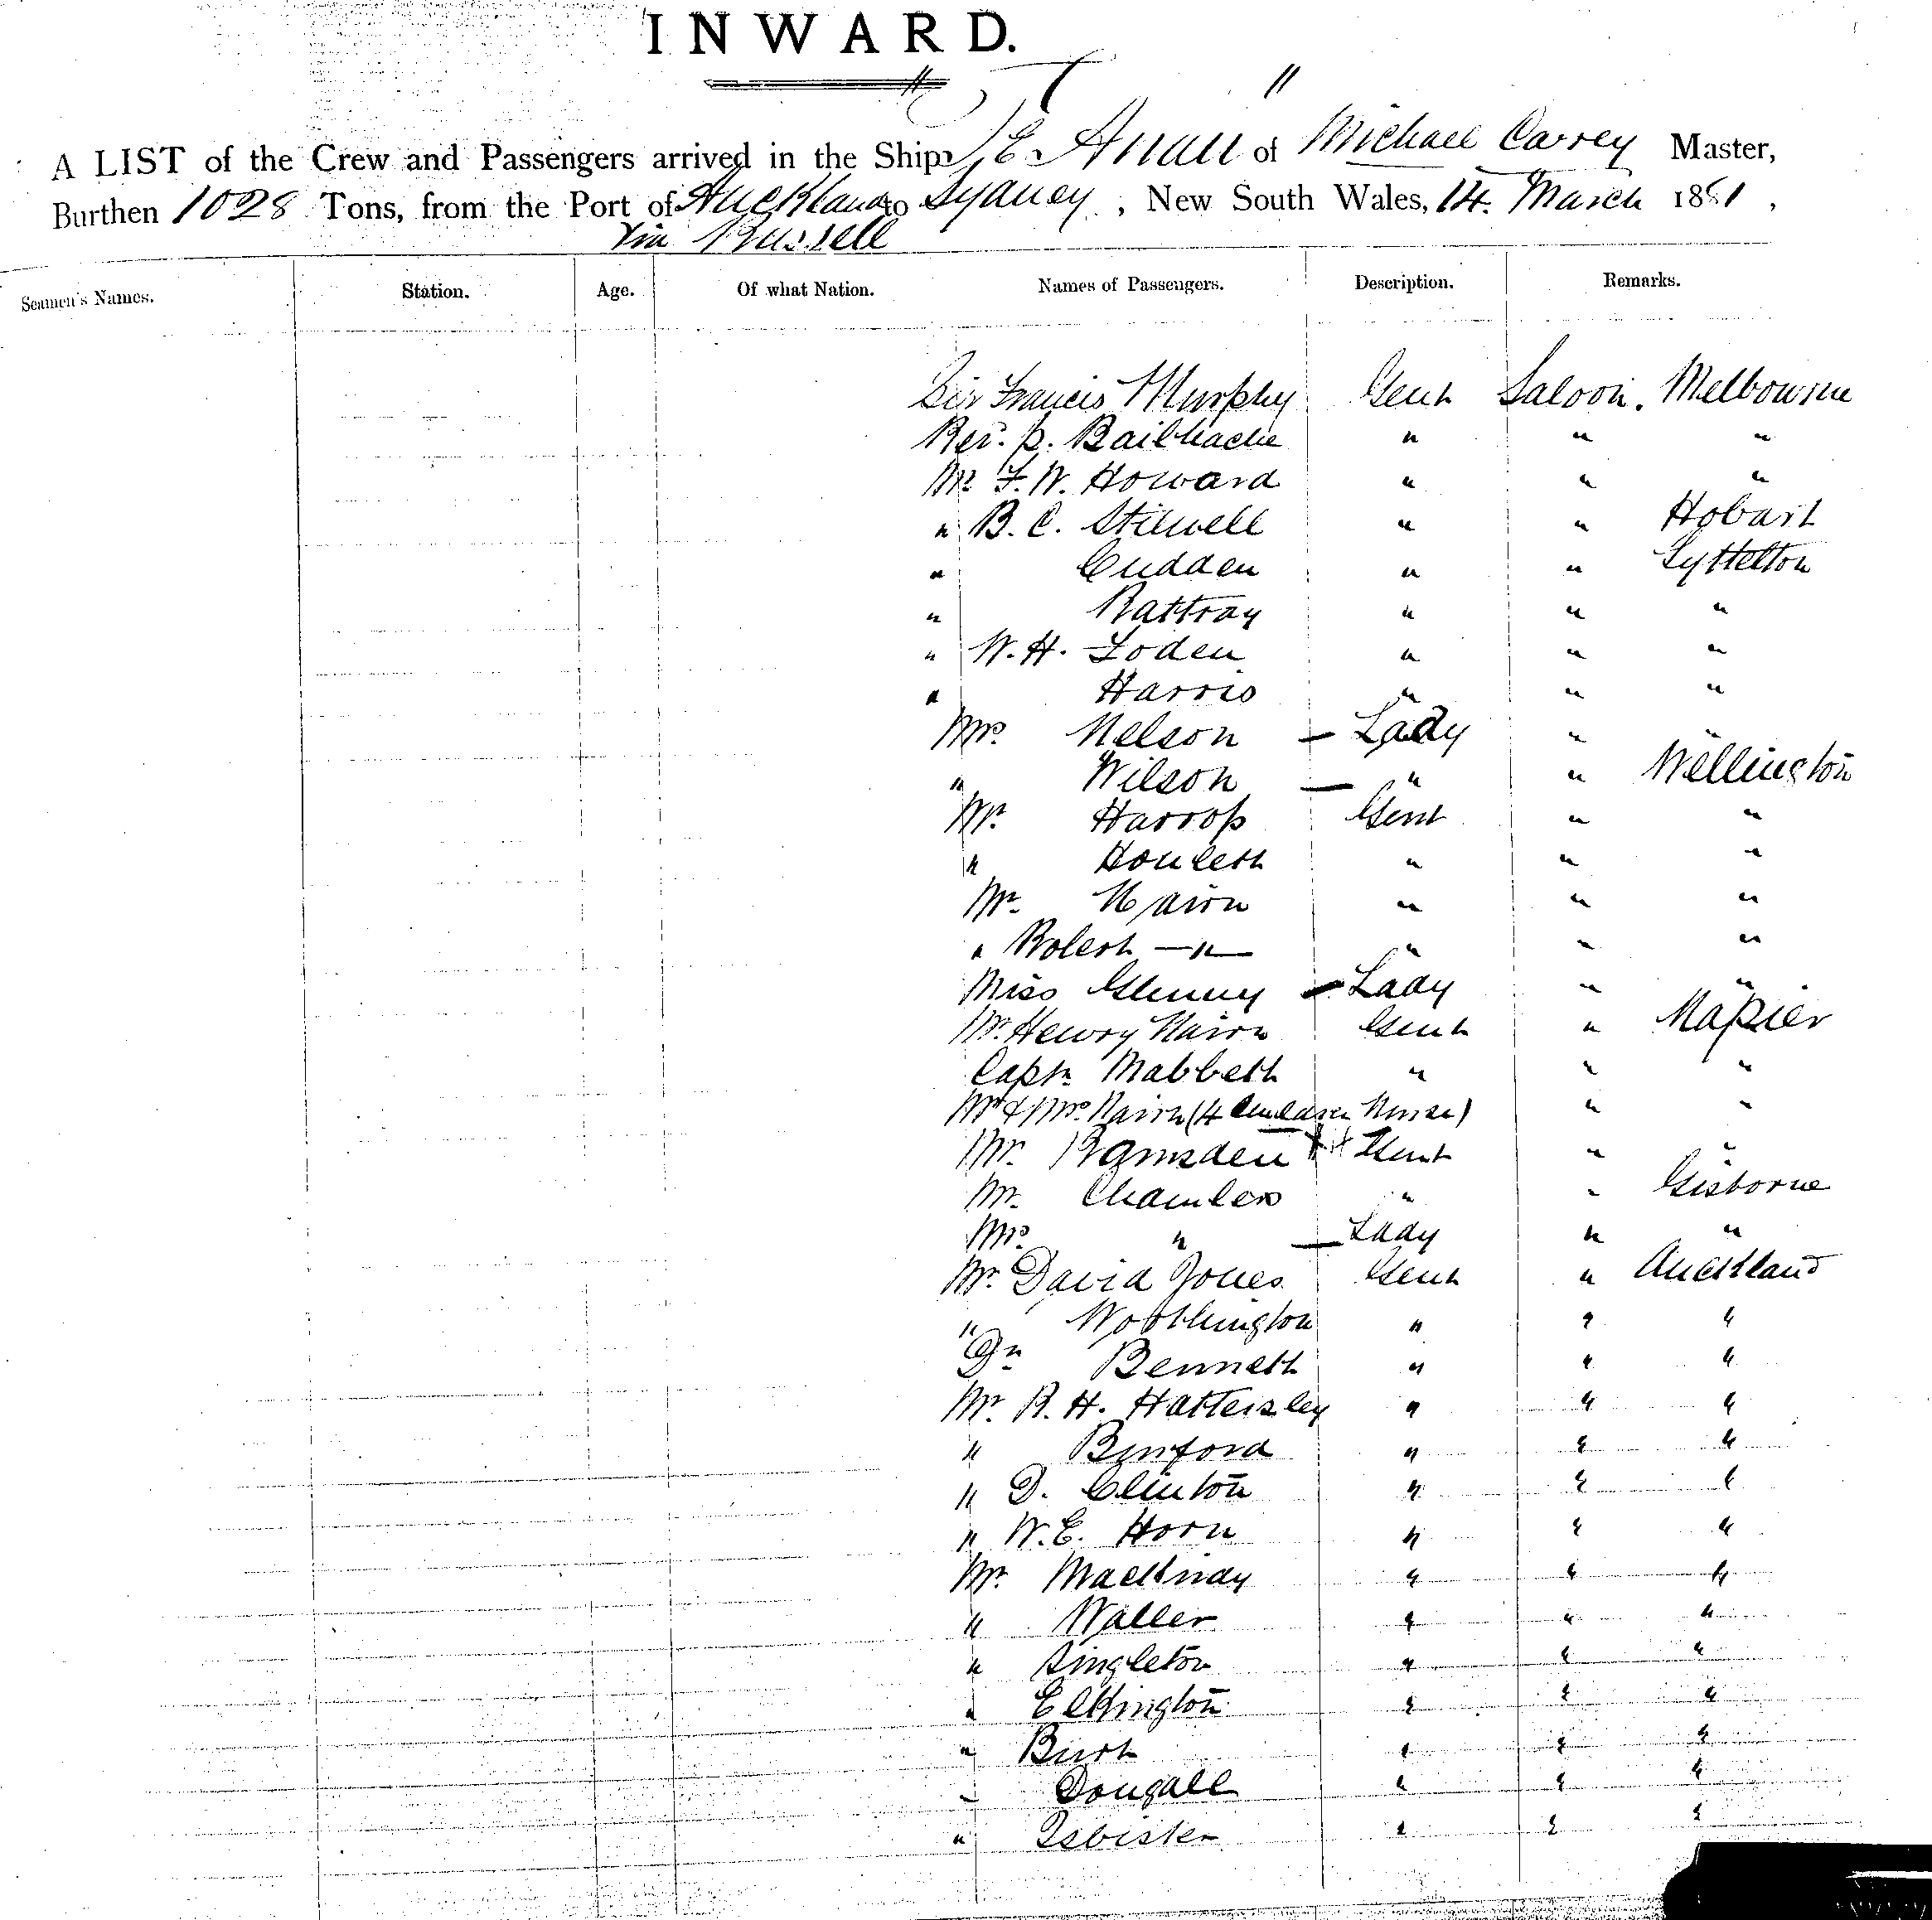 INWARD.
" "
A LIST of the Crew and Passengers arrived in the Ship Te Anau of Michael Carrey Master,
Burthen 1028 Tons, from the Port of Auckland to Sydney, New South Wales, 14. March 1881,
Via Russell
Seamen's Names. Station. Age. Of what Nation. Names of Passengers. Description. Remarks.
Sir Francis Murphy Gent Saloon. Melbourne
Rev. P. Bailhache " " "
Mr F. W. Howard " " "
" B. C. Stilwell " " Hobart
" Cudden " " Lyttelton
" Rattray " " "
" W. H. Loden " " "
" Harris " " "
Mrs. Nelson - Lady " "
" Wilson - " " Wellington
Mr. Harrop Gent " "
" Howlett " " "
Mr. Nairn " " "
" Robert —"— " " "
Miss Glenny - Lady " "
Mr. Henry Nairn Gent " Napier
Capt. Mabbett " " "
Mr & Mrs. Nairn (4 Children Nurse) " "
Mr. Ramsden Gent " "
Mr. Chambers " " Gisborne
Mrs. " - Lady " "
Mr. David Jones Gent " Auckland
" Worthington " " "
Dr Bennett " " "
Mr. R. H. Hattersley " " "
" Binford " " "
" D. Clinton " " "
" W. E. Horn " " "
Mr. " " "
" Waller " " "
" Singleton " " "
" Elkington " " "
" Burt " " "
" Dougall " " "
" Isbister " " "